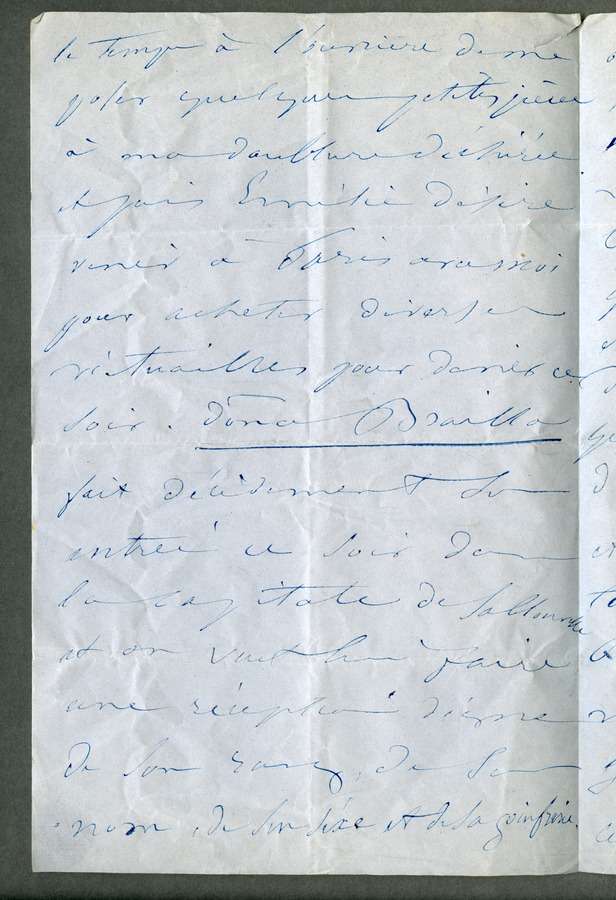 le temps à l'ouvrière de me
poser quelques petites pièces
à ma doublure déchirée
et puis Emélie désire
venir à Paris avec moi
pour acheter diverses
victuailles pour dîner ce
soir. Dona Brailla
fait décidément son
entrée ce soir dans
la capitale de
et on veut lui faire
une réception digne
de son rang, de son
nom, de son sexe et de sa goinfrerie.